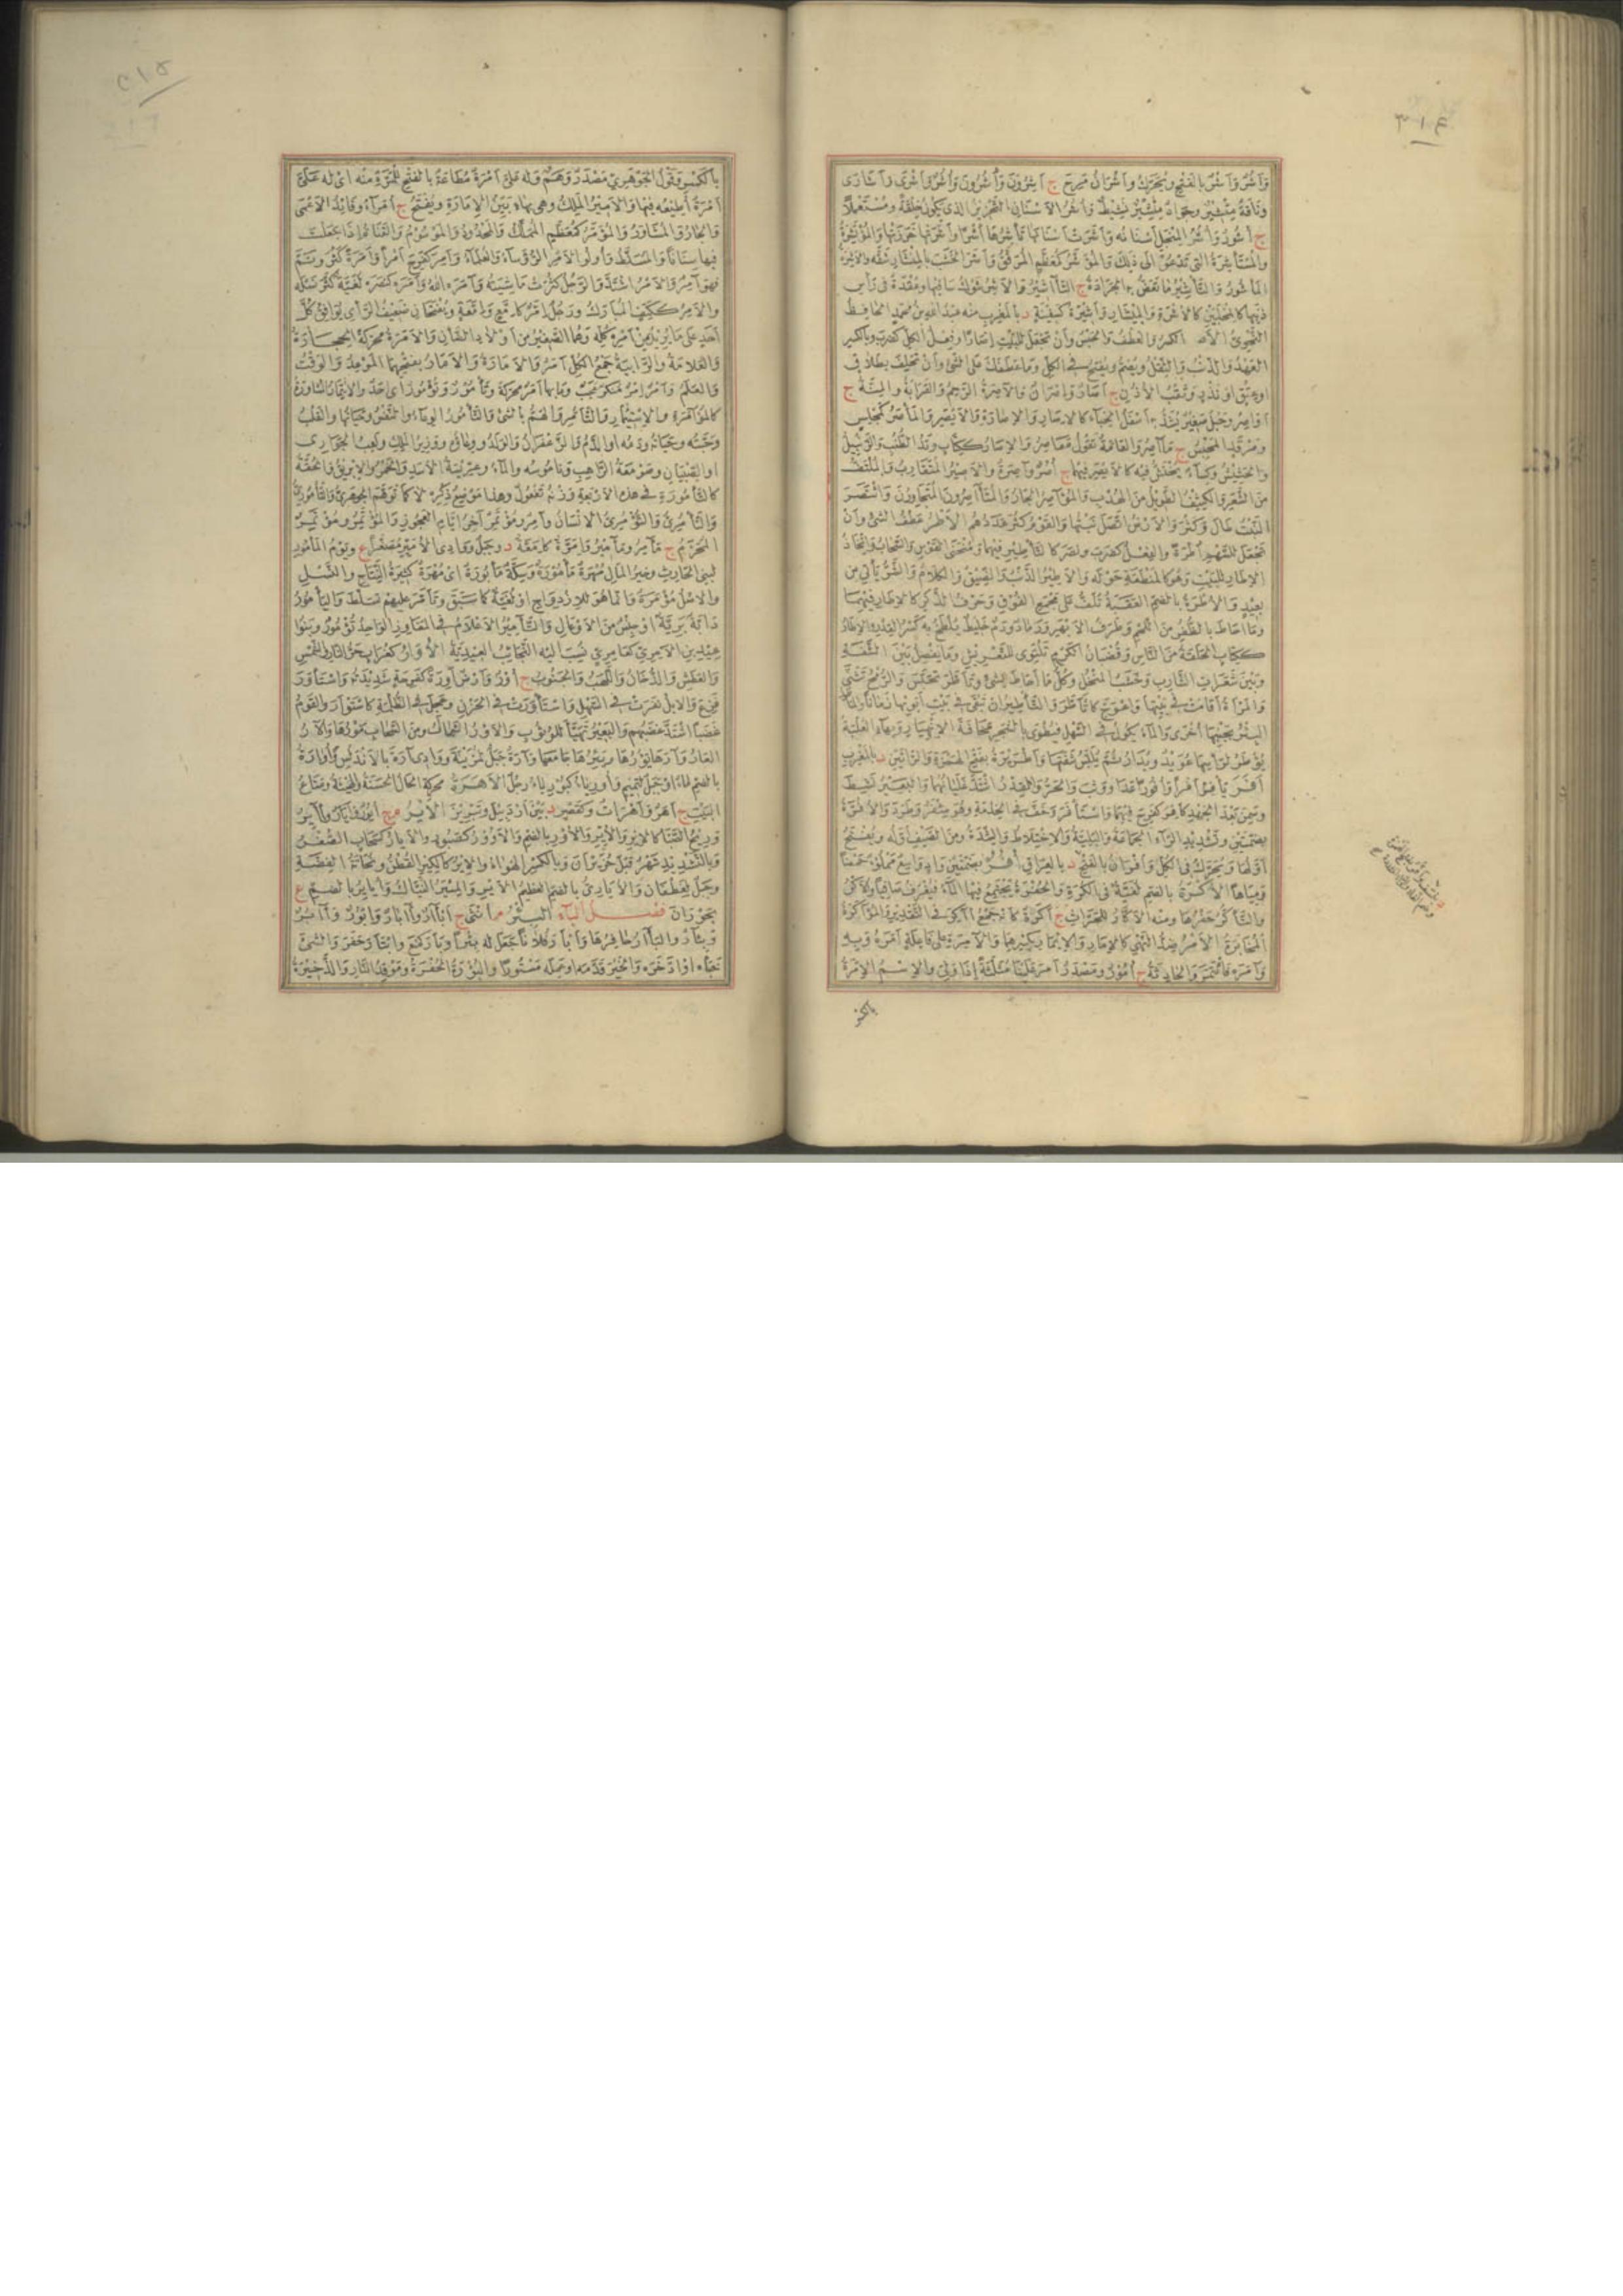 ٣١٤
وأشر وأشر بالفتح ويحرك وأشران مرح ج أشرون وأشرون وأشر وأشرى وأشارى
وناقة مئشير وجواد مئشير نشيط وأشر الأسنان التحزيز الذى يكون خلقة ومستعملا
ج أشور وأشر المنجل أسنانه وأشرت أسنانها تأشرها أشرا وأشرتها حززتها والمؤتشرة
والمستأشرة التى تدعو الى ذلك والمؤشر كمعظم المرقق وأشر الخشب بالمئشار شقه
المأشور والتأشير ما تعض به الجرادة ج التآشير والأشر شوك ساقيها وعقدة فى رأس
ذنبها كالمخلبين كالأشرة والمئشار وأشيرة كسفينة د بالمغرب منه عبد الله بن محمد الحافظ
النحوى الأصر الكسر والعطف والحبس وأن تجعل للبيت إصارا وفعل الكل كضرب وبالكسر
العهد والذنب والثقل ويضم ويفتح فى الكل وما عطفك على شئ وأن تحلف بطلاق
او عتق او نذر وثقب الأذن ج آصار وإصران والآصرة الرحم والقرابة والمنة ج
أواصر وحبل صغير يشد به أسفل الخباء كالإصار والإصارة والأيصر والمأصر كمجلس
ومرقد المحبس ج مآصر والعامة تقول معاصر والإصار ككتاب وتد الطنب والزبيل
والحشيش وكساء يحتش فيه كالأيصر فيهما ج أصر وآصرة والأصير المتقارب والملتف
من الشعر والكثيف الطويل من الهدب والمؤاصر الجار والمتآصرون المتجاورون وائتصر
النبت طال وكثر والأرض اتصل نبتها والقوم كثر عددهم الأطر عطف الشئ وأن
تجعل للسهم أطرة والفعل كضرب ونصر كالتأطير فيهما ومنحنى القوس والسحاب واتخاذ
الإطار للبيت وهو كالمنطقة حوله والأطير الذنب والضيق والكلام والشر يأتى من
بعيد والأطرة بالضم العقبة تلف على مجمع الفوق وحرف الذكر كالإطار فيهما
وما احاط بالظفر من اللحم وطرف الأبهر ورماد ودم خليط يلطخ به كسر القدر والإطار
ككتاب الحلقة من الناس وقضبان الكرم تلتوى للتعريش وما يفصل بين الشفة
وبين شعرات الشارب وخشب المنخل وكل ما أحاط بشئ وتأطر تحبس والرمح تثنى
والمرأة أقامت فى بيتها واعوج كانأطر والتأطير ان تبقى فى بيت أبويها زمانا
البئر بجنبها أخرى والماء يكون فى السهل فيطوى بالشجر مخافة الانهيار
يؤطر لرأسها عويد ويدار ثم يلبس شفتها وأطريرة بفتح الهمزة والرائين د بالمغرب
أفر يأفر أفرا وأفورا عدا ووثب والحر والقدر اشتد غليانهما والبعير نشط
وسمن بعد الجهد كأفر كفرح فيهما واستأفر وخف فى الخدمة وهو مئفر وطرد والأفرة
بضمتين وتشديد الراء الجماعة والبلية والاختلاط والشدة ومن الصيف أوله ويفتح
أولها ويحرك فى الكل وأفران بالفتح
ومياها الأكرة بالضم لغية فى الكرة والحفرة يجتمع فيها الماء فيغرف صافيا والأكر
والتأكر حفرها ومنه الأكار للحراث ج أكرة كأنه جمع آكر فى التقدير والمؤاكرة
المخابرة الأمر ضد النهى كالإمار والإيمار بكسرهما والآمرة على فاعلة أمره وبه
وآمره فأتمر والحادثة ج أمور ومصدر أمر علينا مثلثة إذا ولى والاسم الإمرة
بالكسر
٣١٥
بالكسر وقول الجوهرى مصدر وهم وله على أمرة مطاعة بالفتح للمرة منه اى له على
أمرة أطيعه فيها والأمير الملك وهى بهاء بين الإمارة ويفتح ج أمراء وقائد الأعمى
والجار والمشاور والمؤمر كمعظم المملك والمحدد والموسوم والقناة إذا جعلت
فيها سنانا والمسلط وأولو الأمر الرؤساء والعلماء وأمر كفرح أمرا وأمرة كثر وتم
فهو أمر والأمر اشتد والرجل كثرت ماشيته وآمره الله وأمره كنصره لغية كثر نسله
والأمر ككتف المبارك ورجل إمر كإمع وإمعة ويفتحان ضعيف الرأى يوافق كل
أحد على ما يريد من أمره كله وهما الصغير من أولاد الضأن والأمرة محركة الحجارة
والعلامة والرابية جمع الكل أمر والأمارة والأمار بفتحهما الموعد والوقت
والعلم وأمر إمر منكر عجب وما بها أمر محركة وتأمور وتؤمور أى أحد والائتمار المشاورة
كالمؤامرة والاستئمار والتأمر والهم بالشئ والتأمور الوعاء والنفس وحياتها والقلب
وحبته وحياته ودمه أو الدم والزعفران والولد ووعاؤه ووزير الملك ولعب الجوارى
او الصبيان وصومعة الراهب وناموسه والماء وعريسة الأسد والخمر والإبريق والحقة
كالتأمورة فى هذه الأربعة وزنه تفعول وهذا موضع ذكره لا كما توهم الجوهرى والتأمورى
والتأمرى والتؤمرى الانسان وآمر ومؤتمر آخر ايام العجوز والمؤتمر ومؤتمر
المحرم ج مآمر ومآمير وإمرة كإمعة د وجبل ووادى الأمير مصغرا ع ويوم المأمور
لبنى الحارث وخير المال مهرة مأمورة وسكة مأبورة اى مهرة كثيرة النتاج والنسل
والاصل مؤمرة وانما هو للازدواج او لغية كما سبق وتأمر عليهم تسلط واليأمور
دابة برية او جنس من الأوعال والتآمير الأعلام فى المفاوز الواحد تؤمور وبنو
عيد بن الآمرى كعامرى نسب اليه النجائب العيدية الأوار كغراب حر النار والشمس
والعطش والدخان واللهب والجنوب ج أور وأرض أورة كفرحة شديدته واستأور
فزع والابل نفرت فى السهل واستوأرت فى الحزن وعجل فى الظلمة كاستوأر والقوم
غضبا اشتد غضبهم والبعير تهيأ للوثوب والأور الشمال ومن السحاب مورها والآر
العار وآرها يؤرها ويئيرها جامعها وآرة جبل لمزينة ووادى آرة بالاندلس وأوارة
بالضم ماء او جبل لتميم وأورياء كبورياء رجل الأهرة محركة الحال الحسنة والهيئة ومتاع
البيت ج أهر وأهرات وكقصير د بين أردبيل وتبريز الأير م ج أيور وآيار وآير
وريح الصبا كالإير والأير والأور بالضم والأوور كصبور والأيار كسحاب الصفر
وبالتشديد شهر قبل حزيران وبالكسر الهواء والإير كالكير القطن ونحاتة الفضة
وجبل لغطفان والأيارى بالضم العظيم الأير والمئير النياك وأياير بالضم ع
بحوران فصل الباء البئر م أنثى ج أبآر وآبار وأبؤر وآبر
وبئار والبأآر حافرها وأبأر فلانا جعل له بئرا وبأر كمنع وابتأر حفر والشئ
خبأه او ادخره والخير قدمه او عمله مستورا والبؤرة الحفرة وموقد النار والذخيرة